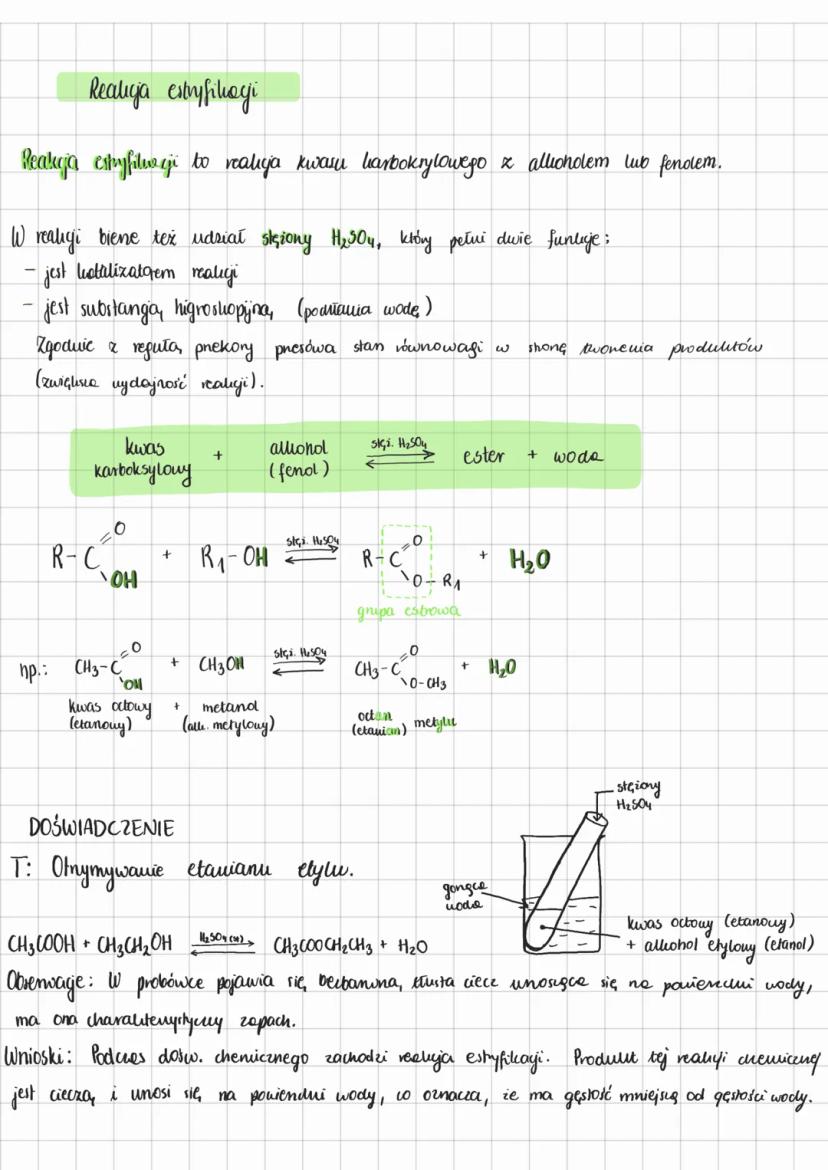 Reakcja estryfikacji
Reakcja estryfikacji to reakcja kwasu karboksylowego z alkoholem lub fenolem.
W reakcji bierze też udział stężony H₂SO₄, który pełni dwie funkcje:
- jest katalizatorem reakcji
- jest substancją higroskopijną (pochłania wodę)
Zgodnie z regułą przekory przesuwa stan równowagi w stronę tworzenia produktów
(zwiększa wydajność reakcji).
kwas karboksylowy + alkohol (fenol) ⇌ stęż. H₂SO₄ ester + woda
R-C(=O)-OH + R₁-OH ⇌ stęż. H₂SO₄ R-C(=O)-O-R₁ + H₂O
grupa estrowa
np.: CH₃-C(=O)-OH + CH₃OH ⇌ stęż. H₂SO₄ CH₃-C(=O)-O-CH₃ + H₂O
kwas octowy (etanowy) + metanol (alk. metylowy) octan (etanian) metylu
stężony
H₂SO₄
DOŚWIADCZENIE
T: Otrzymywanie etanianu etylu.
gorąca
woda
kwas octowy (etanowy)
+ alkohol etylowy (etanol)
CH₃COOH + CH₃CH₂OH ⇌ H₂SO₄ (st) CH₃COOCH₂CH₃ + H₂O
Obserwacje: W probówce pojawia się bezbarwna, tłusta ciecz unosząca się na powierzchni wody,
ma ona charakterystyczny zapach.
Wnioski: Podczas dośw. chemicznego zachodzi reakcja estryfikacji. Produkt tej reakcji chemicznej
jest cieczą i unosi się na powierzchni wody, co oznacza, że ma gęstość mniejszą od gęstości wody.